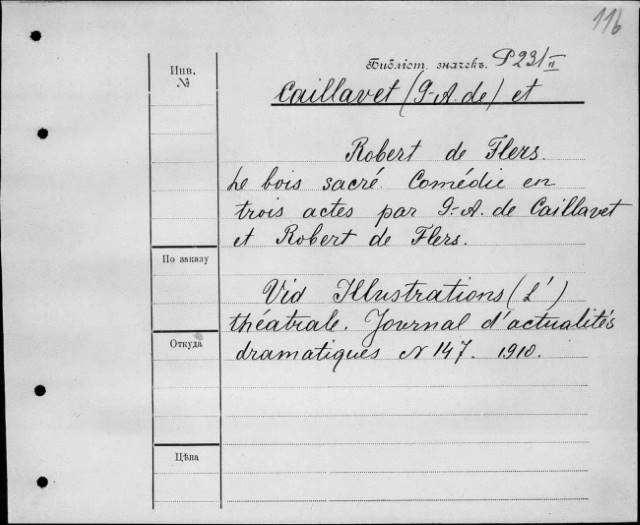 116
Библіот. значекъ. P231 II
Инв.
№
Caillavet (G-A. de) et
Robert de Flers.
Le bois sacré. Comédie en
trois actes par G.-A. de Caillavet
et Robert de Flers.
По заказу
Vid Illustrations (L')
théatrale. Journal d'actualités
Откуда
dramatiques N 147. 1910.
Цѣна